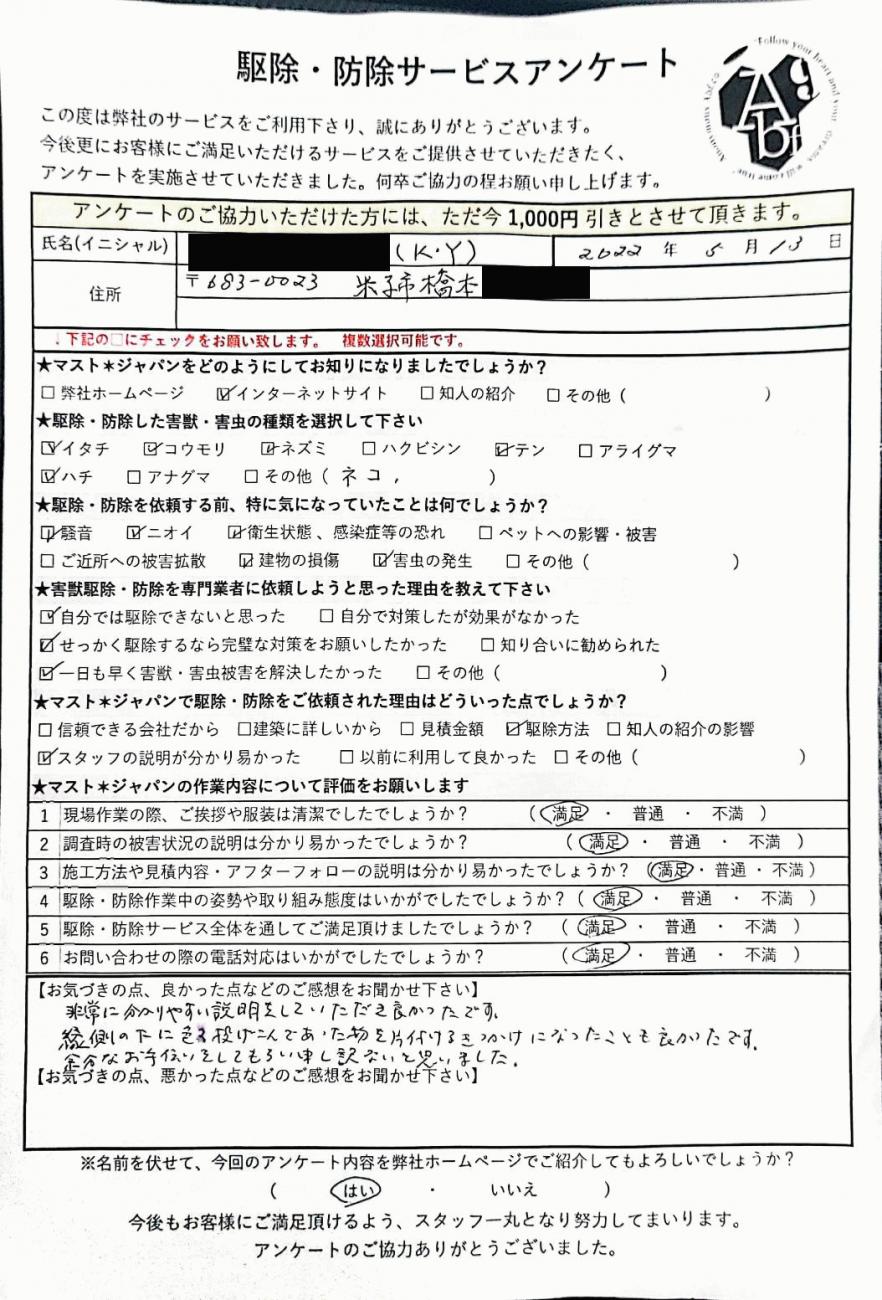 駆除・防除サービスアンケート
Follow your heart and your
Ag
bf
この度は弊社のサービスをご利用下さり、誠にありがとうございます。
今後更にお客様にご満足いただけるサービスをご提供させていただきたく、
アンケートを実施させていただきました。何卒ご協力の程お願い申し上げます。
アンケートのご協力いただけた方には、ただ今 1,000円 引きとさせて頂きます。
氏名(イニシャル) (K・Y) 2022 年 5 月 13 日
住所 〒683-0023 米子市橋本
↓下記の□にチェックをお願い致します。 複数選択可能です。
★マスト＊ジャパンをどのようにしてお知りになりましたでしょうか？
□ 弊社ホームページ ☑インターネットサイト □ 知人の紹介 □ その他 ( )
★駆除・防除した害獣・害虫の種類を選択して下さい
☑イタチ ☑コウモリ ☑ネズミ □ ハクビシン ☑テン □ アライグマ
☑ハチ □ アナグマ □ その他 ( ネコ, )
★駆除・防除を依頼する前、特に気になっていたことは何でしょうか？
☑騒音 ☑ニオイ ☑衛生状態、感染症等の恐れ □ ペットへの影響・被害
□ ご近所への被害拡散 ☑建物の損傷 ☑害虫の発生 □ その他 ( )
★害獣駆除・防除を専門業者に依頼しようと思った理由を教えて下さい
☑自分では駆除できないと思った □ 自分で対策したが効果がなかった
☑せっかく駆除するなら完璧な対策をお願いしたかった □ 知り合いに勧められた
☑一日も早く害獣・害虫被害を解決したかった □ その他 ( )
★マスト＊ジャパンで駆除・防除をご依頼された理由はどういった点でしょうか？
□ 信頼できる会社だから □建築に詳しいから □ 見積金額 ☑駆除方法 □ 知人の紹介の影響
☑スタッフの説明が分かり易かった □ 以前に利用して良かった □ その他 ( )
★マスト＊ジャパンの作業内容について評価をお願いします
1 現場作業の際、ご挨拶や服装は清潔でしたでしょうか？ ( 満足 ・ 普通 ・ 不満 )
2 調査時の被害状況の説明は分かり易かったでしょうか？ ( 満足 ・ 普通 ・ 不満 )
3 施工方法や見積内容・アフターフォローの説明は分かり易かったでしょうか？ ( 満足・普通・不満 )
4 駆除・防除作業中の姿勢や取り組み態度はいかがでしたでしょうか？ ( 満足 ・ 普通 ・ 不満 )
5 駆除・防除サービス全体を通してご満足頂けましたでしょうか？ ( 満足 ・ 普通 ・ 不満 )
6 お問い合わせの際の電話対応はいかがでしたでしょうか？ ( 満足 ・ 普通 ・ 不満 )
【お気づきの点、良かった点などのご感想をお聞かせ下さい】
非常に分かりやすい説明をしていただき良かったです。
縁側の下に色々投げこんであった物を片付けるきっかけになったことも良かたです。
余分なお手伝いをしてもらい申し訳ないと思いました。
【お気づきの点、悪かった点などのご感想をお聞かせ下さい】
※名前を伏せて、今回のアンケート内容を弊社ホームページでご紹介してもよろしいでしょうか？
( はい ・ いいえ )
今後もお客様にご満足頂けるよう、スタッフ一丸となり努力してまいります。
アンケートのご協力ありがとうございました。